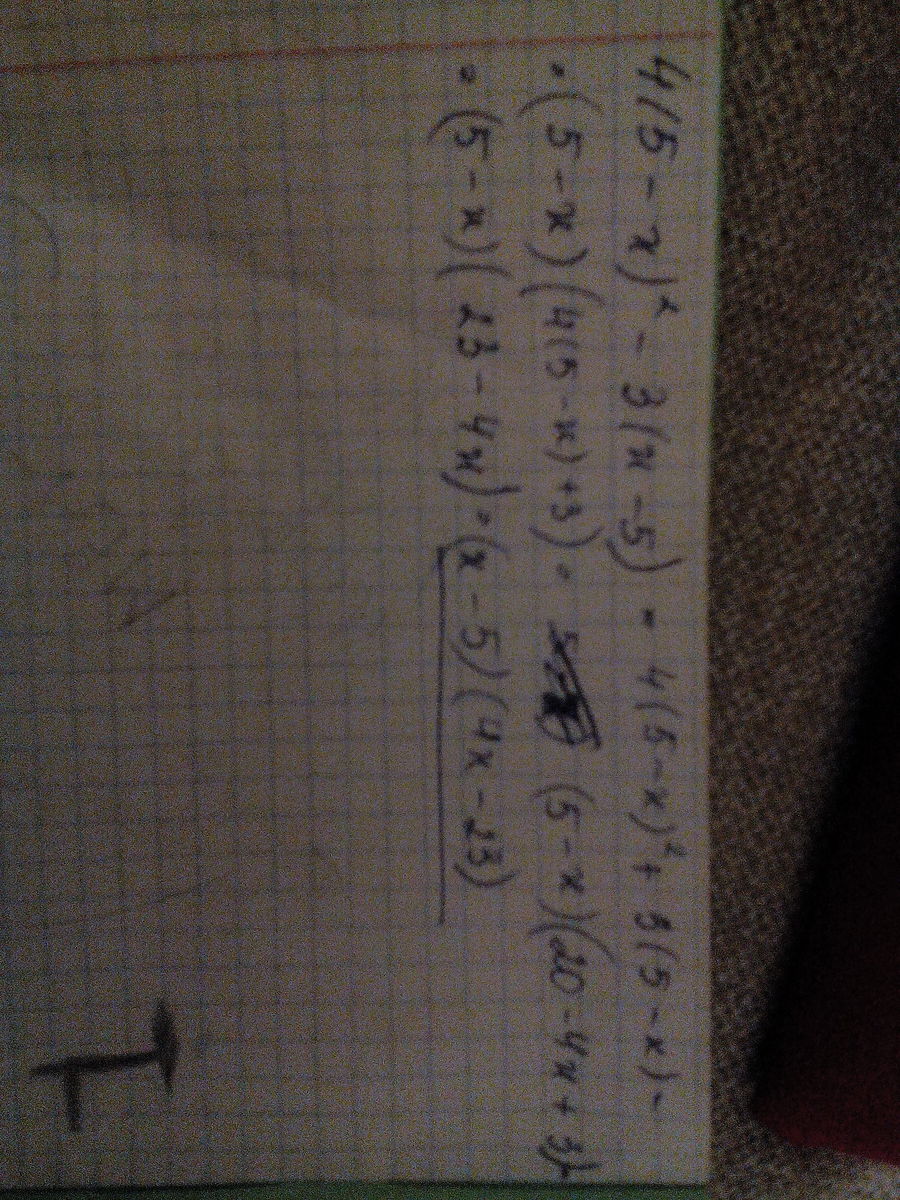 4(5-x)² - 3(x-5) = 4(5-x)² + 3(5-x) =
= (5-x)(4(5-x)+3) = (5-x)(20-4x+3) =
= (5-x)(23-4x) = (x-5)(4x-23)